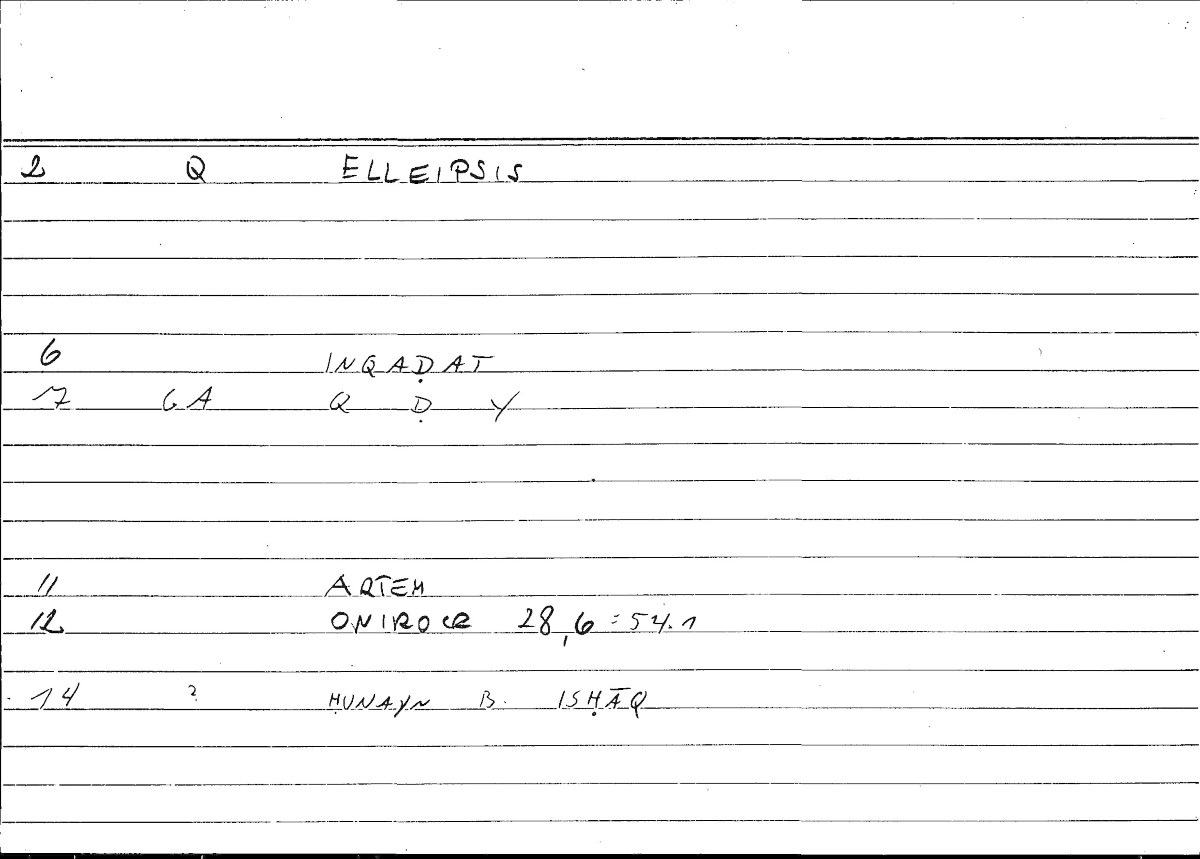 2 Q ELLEIPSIS
6 INQAḌAT
7 GA Q Ḍ Y
11 ARTEM
12 ONIROCR 28,6 = 54.1
14 ? ḤUNAYN B. ISḤĀQ